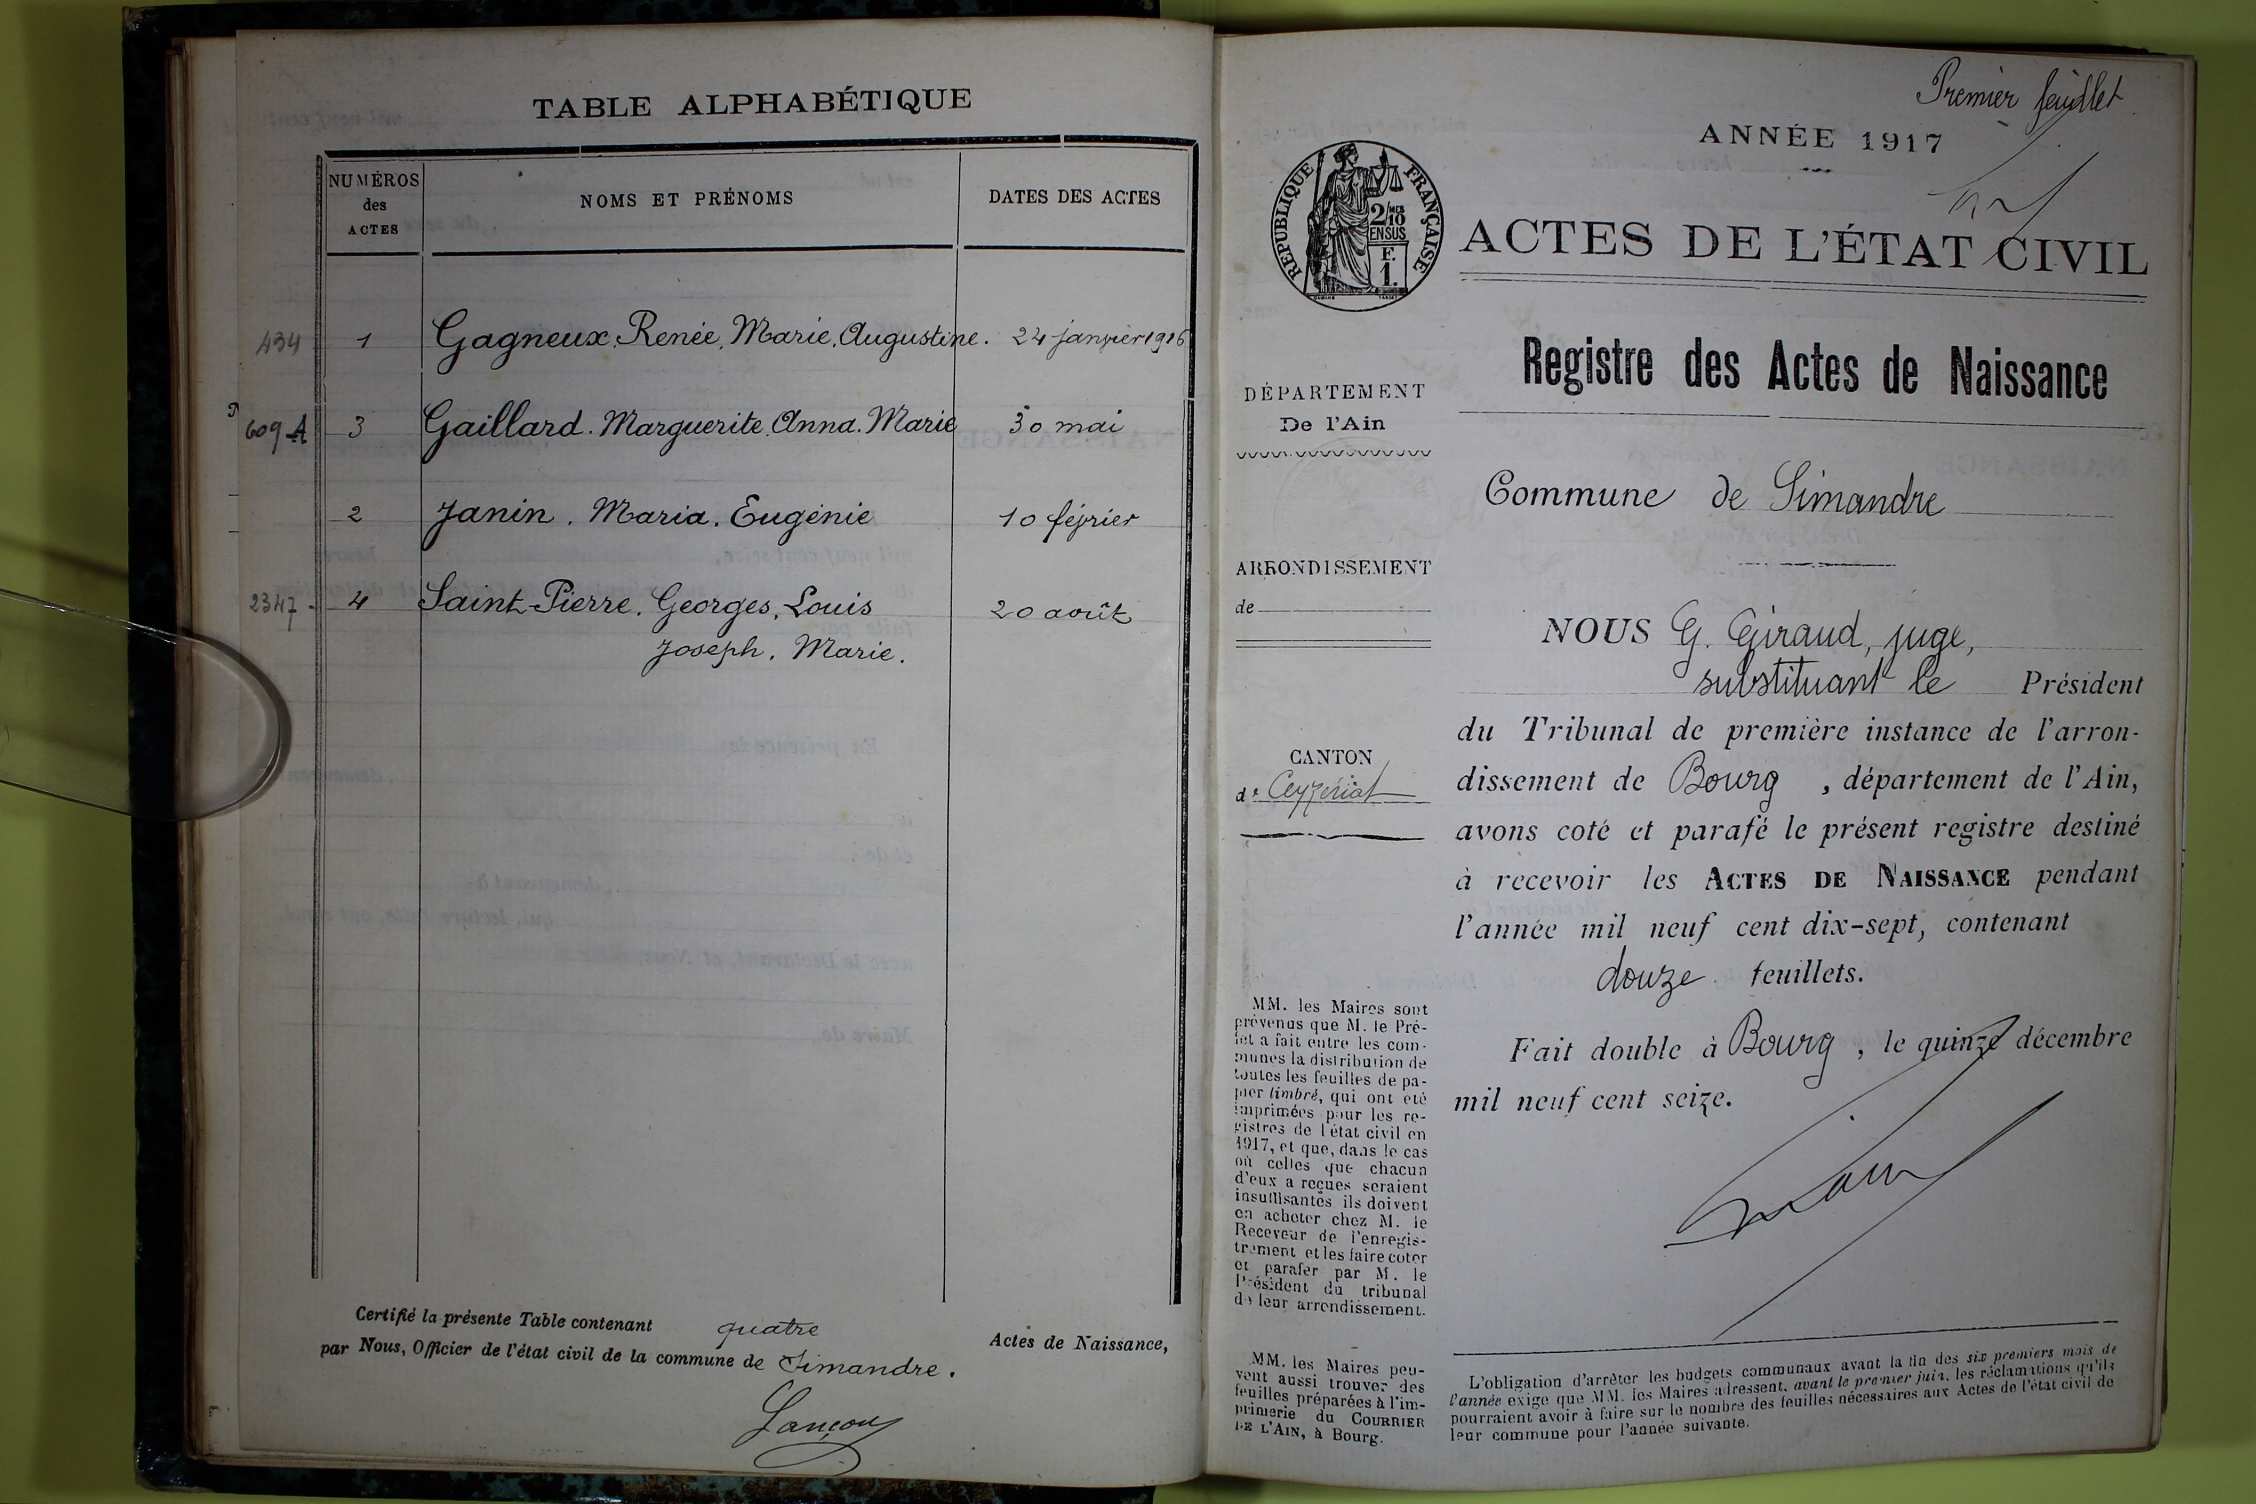 TABLE ALPHABÉTIQUE
NUMÉROS
des
ACTES
NOMS ET PRÉNOMS
DATES DES ACTES
434 1 Gagneux, Renée, Marie, Augustine. 24 janvier 1916
609 A 3 Gaillard. Marguerite. Anna. Marie 30 mai
2 Janin. Maria. Eugénie 10 février
2347 - 4 Saint-Pierre. Georges, Louis 20 août
Joseph. Marie.
Certifié la présente Table contenant quatre Actes de Naissance,
par Nous, Officier de l'état civil de la commune de Simandre.
Lançon
Premier feuillet
ANNÉE 1917
RÉPUBLIQUE FRANÇAISE
2/10 MES
EN SUS
F.
1.
ACTES DE L'ÉTAT CIVIL
Registre des Actes de Naissance
DÉPARTEMENT
De l'Ain
Commune de Simandre
ARRONDISSEMENT
de
CANTON
de Ceyzériat
NOUS G. Giraud, juge,
substituant le Président
du Tribunal de première instance de l'arron-
dissement de Bourg, département de l'Ain,
avons coté et parafé le présent registre destiné
à recevoir les ACTES DE NAISSANCE pendant
l'année mil neuf cent dix-sept, contenant
douze feuillets.
Fait double à Bourg, le quinze décembre
mil neuf cent seize.
MM. les Maires sont
prévenus que M. le Pré-
fet a fait entre les com-
munes la distribution de
toutes les feuilles de pa-
pier timbré, qui ont été
imprimées pour les re-
gistres de l'état civil en
1917, et que, dans le cas
où celles que chacun
d'eux a reçues seraient
insuffisantes ils doivent
en acheter chez M. le
Receveur de l'enregis-
trement et les faire coter
et parafer par M. le
Président du tribunal
de leur arrondissement.
MM. les Maires peu-
vent aussi trouver des
feuilles préparées à l'im-
primerie du COURRIER
DE L'AIN, à Bourg.
L'obligation d'arrêter les budgets communaux avant la fin des six premiers mois de
l'année exige que MM. les Maires adressent, avant le premier juin, les réclamations qu'ils
pourraient avoir à faire sur le nombre des feuilles nécessaires aux Actes de l'état civil de
leur commune pour l'année suivante.